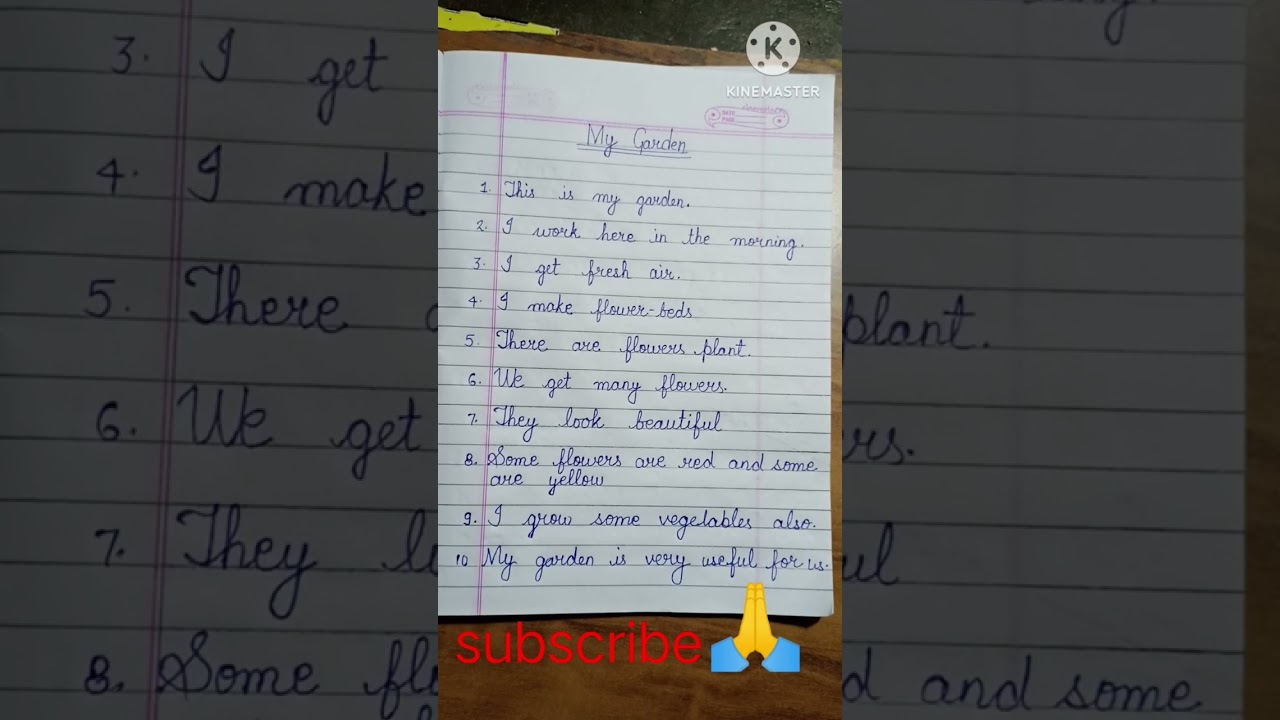 KINEMASTER
DATE
PAGE
My Garden
1. This is my garden.
2. I work here in the morning.
3. I get fresh air.
4. I make flower-beds
5. There are flowers plant.
6. We get many flowers.
7. They look beautiful
8. Some flowers are red and some
are yellow
9. I grow some vegetables also.
10 My garden is very useful for us.
subscribe
3. I get
4. I make
5. There
6. We get
7. They
8. Some
plant.
and some